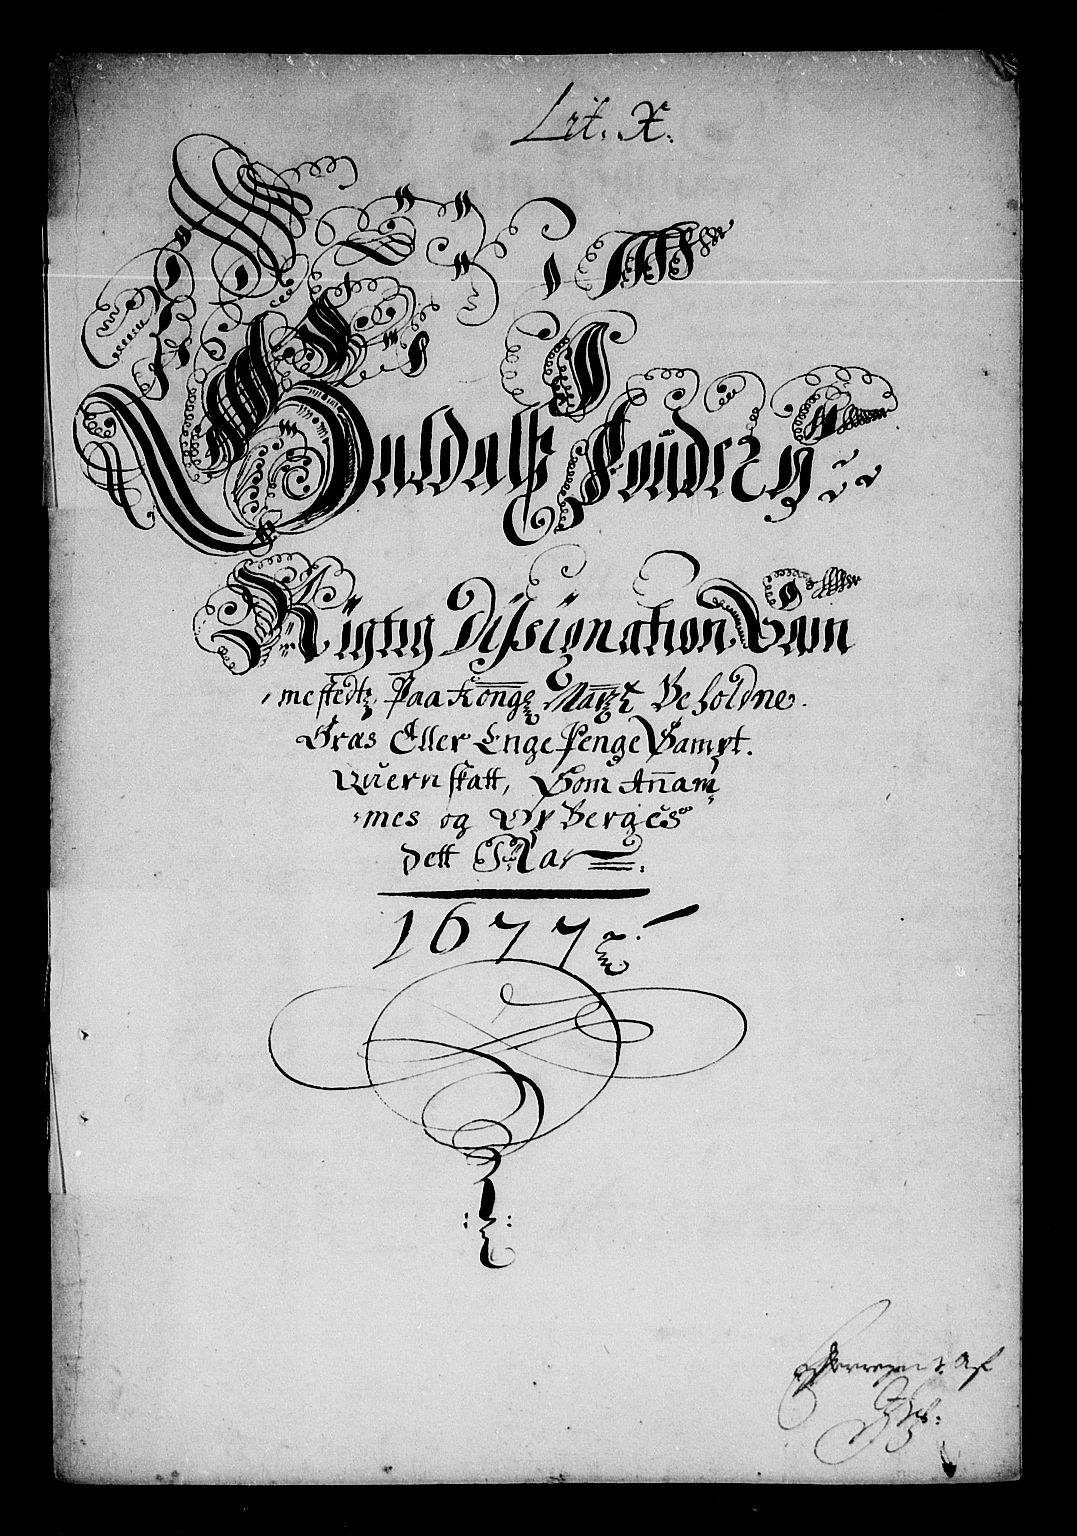 Lit. X.
Guldals fougderÿ
Rigtig Dissignation Sam
mestedz Paa Kong: Maÿ: Beholdne.
Gras Eller Enge Penge Sampt.
Quern skatt, Som Anam
mes og Op Berges
Dett Aar
1677
af